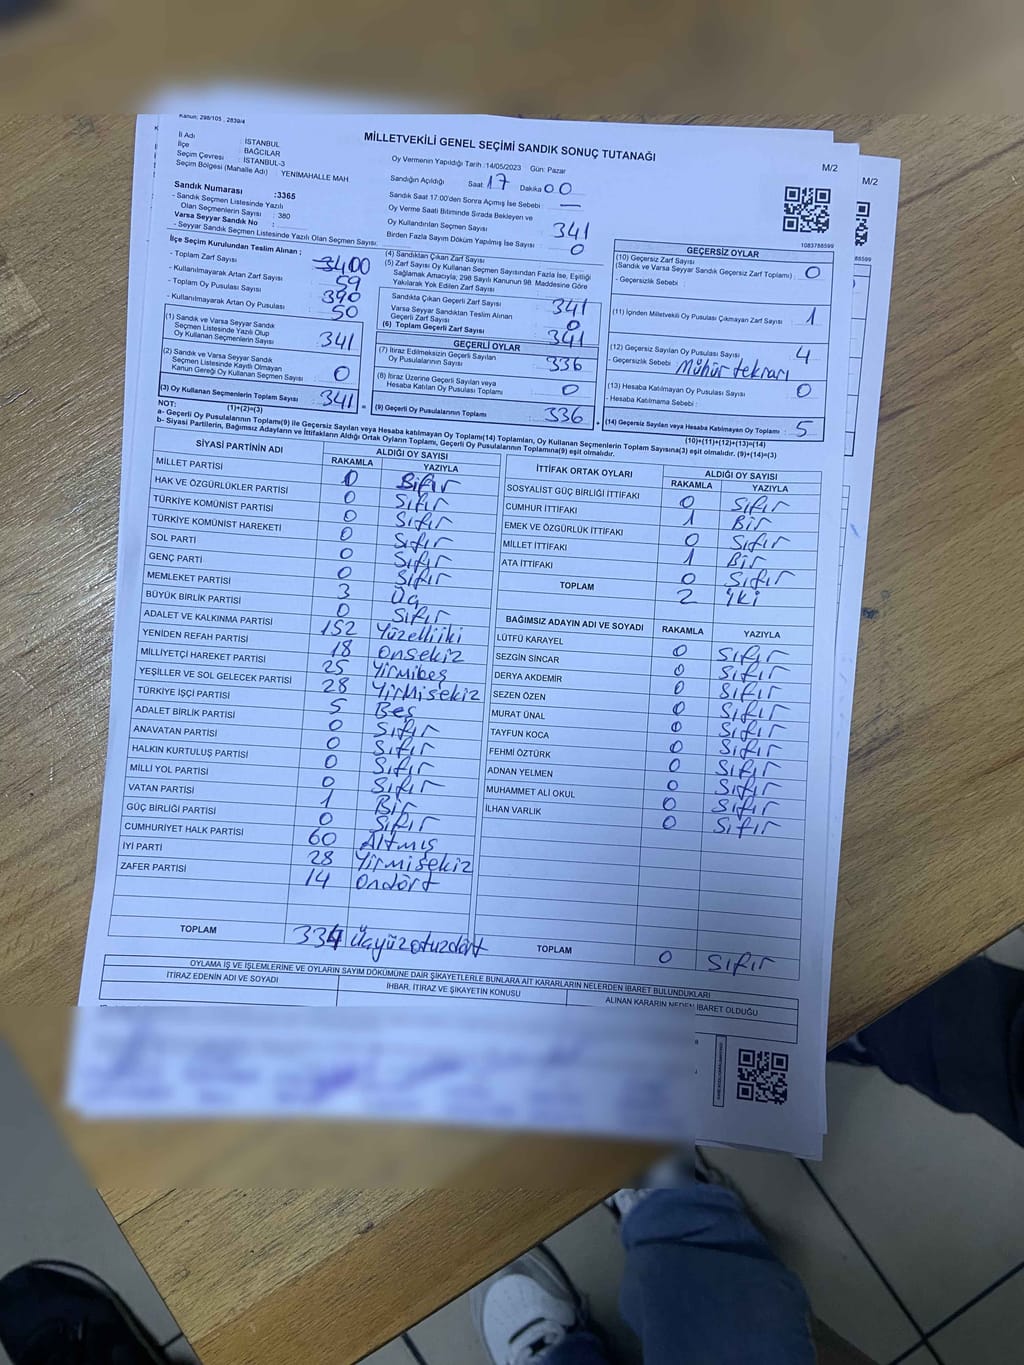 Kanun; 298/105 , 2839/4
MİLLETVEKİLİ GENEL SEÇİMİ SANDIK SONUÇ TUTANAĞI
M/2
M/2
İl Adı : İSTANBUL
İlçe : BAĞCILAR
Seçim Çevresi : İSTANBUL-3
Seçim Bölgesi (Mahalle Adı) : YENİMAHALLE MAH
Sandık Numarası :3365
- Sandık Seçmen Listesinde Yazılı
Olan Seçmenlerin Sayısı : 380
Varsa Seyyar Sandık No :
- Seyyar Sandık Seçmen Listesinde Yazılı Olan Seçmen Sayısı:
Oy Vermenin Yapıldığı Tarih :14/05/2023 Gün: Pazar
Sandığın Açıldığı Saat: 17 Dakika 00
Sandık Saat 17:00'den Sonra Açımış İse Sebebi : —
Oy Verme Saati Bitiminde Sırada Bekleyen ve
Oy Kullandırılan Seçmen Sayısı 341
Birden Fazla Sayım Döküm Yapılmış İse Sayısı 0
1083788599
88599
İlçe Seçim Kurulundan Teslim Alınan ;
- Toplam Zarf Sayısı 3400
- Kullanılmayarak Artan Zarf Sayısı 59
- Toplam Oy Pusulası Sayısı 390
- Kullanılmayarak Artan Oy Pusulası 50
(1) Sandık ve Varsa Seyyar Sandık
Seçmen Listesinde Yazılı Olup
Oy Kullanan Seçmenlerin Sayısı 341
(2) Sandık ve Varsa Seyyar Sandık
Seçmen Listesinde Kayıtlı Olmayan
Kanun Gereği Oy Kullanan Seçmen Sayısı 0
(3) Oy Kullanan Seçmenlerin Toplam Sayısı 341
(1)+(2)=(3)
(4) Sandıktan Çıkan Zarf Sayısı
(5) Zarf Sayısı Oy Kullanan Seçmen Sayısından Fazla İse, Eşitliği
Sağlamak Amacıyla, 298 Sayılı Kanunun 98. Maddesine Göre
Yakılarak Yok Edilen Zarf Sayısı :
Sandıkta Çıkan Geçerli Zarf Sayısı 341
Varsa Seyyar Sandıktan Teslim Alınan
Geçerli Zarf Sayısı 0
(6) Toplam Geçerli Zarf Sayısı 341
GEÇERLİ OYLAR
(7) İtiraz Edilmeksizin Geçerli Sayılan
Oy Pusulalarının Sayısı 336
(8) İtiraz Üzerine Geçerli Sayılan veya
Hesaba Katılan Oy Pusulası Toplamı 0
(9) Geçerli Oy Pusulalarının Toplamı 336
GEÇERSİZ OYLAR
(10) Geçersiz Zarf Sayısı
(Sandık ve Varsa Seyyar Sandık Geçersiz Zarf Toplamı) : 0
- Geçersizlik Sebebi :
(11) İçinden Milletvekili Oy Pusulası Çıkmayan Zarf Sayısı 1
(12) Geçersiz Sayılan Oy Pusulası Sayısı 4
- Geçersizlik Sebebi : Mühür tekrarı
(13) Hesaba Katılmayan Oy Pusulası Sayısı 0
- Hesaba Katılmama Sebebi :
(14) Geçersiz Sayılan veya Hesaba Katılmayan Oy Toplamı 5
(10)+(11)+(12)+(13)=(14)
NOT:
a- Geçerli Oy Pusulalarının Toplamı(9) ile Geçersiz Sayılan veya Hesaba katılmayan Oy Toplamı(14) Toplamları, Oy Kullanan Seçmenlerin Toplam Sayısına(3) eşit olmalıdır. (9)+(14)=(3)
b- Siyasi Partilerin, Bağımsız Adayların ve İttifakların Aldığı Ortak Oyların Toplamı, Geçerli Oy Pusulalarının Toplamına(9) eşit olmalıdır.
SİYASİ PARTİNİN ADI ALDIĞI OY SAYISI
RAKAMLA YAZIYLA
MİLLET PARTİSİ 0 Bifır
HAK VE ÖZGÜRLÜKLER PARTİSİ 0 Sıfır
TÜRKİYE KOMÜNİST PARTİSİ 0 Sıfır
TÜRKİYE KOMÜNİST HAREKETİ 0 Sıfır
SOL PARTİ 0 Sıfır
GENÇ PARTİ 0 Sıfır
MEMLEKET PARTİSİ 3 Üç
BÜYÜK BİRLİK PARTİSİ 0 Sıfır
ADALET VE KALKINMA PARTİSİ 152 Yüzelliiki
YENİDEN REFAH PARTİSİ 18 Onsekiz
MİLLİYETÇİ HAREKET PARTİSİ 25 Yirmibeş
YEŞİLLER VE SOL GELECEK PARTİSİ 28 Yirmisekiz
TÜRKİYE İŞÇİ PARTİSİ 5 Beş
ADALET BİRLİK PARTİSİ 0 Sıfır
ANAVATAN PARTİSİ 0 Sıfır
HALKIN KURTULUŞ PARTİSİ 0 Sıfır
MİLLİ YOL PARTİSİ 0 Sıfır
VATAN PARTİSİ 1 Bir
GÜÇ BİRLİĞİ PARTİSİ 0 Sıfır
CUMHURİYET HALK PARTİSİ 60 Altmış
İYİ PARTİ 28 Yirmisekiz
ZAFER PARTİSİ 14 Ondört
TOPLAM 334 Üçyüzotuzdört
İTTİFAK ORTAK OYLARI ALDIĞI OY SAYISI
RAKAMLA YAZIYLA
SOSYALİST GÜÇ BİRLİĞİ İTTİFAKI 0 Sıfır
CUMHUR İTTİFAKI 1 Bir
EMEK VE ÖZGÜRLÜK İTTİFAKI 0 Sıfır
MİLLET İTTİFAKI 1 Bir
ATA İTTİFAKI 0 Sıfır
TOPLAM 2 İki
BAĞIMSIZ ADAYIN ADI VE SOYADI RAKAMLA YAZIYLA
LÜTFÜ KARAYEL 0 Sıfır
SEZGİN SİNCAR 0 Sıfır
DERYA AKDEMİR 0 Sıfır
SEZEN ÖZEN 0 Sıfır
MURAT ÜNAL 0 Sıfır
TAYFUN KOCA 0 Sıfır
FEHMİ ÖZTÜRK 0 Sıfır
ADNAN YELMEN 0 Sıfır
MUHAMMET ALİ OKUL 0 Sıfır
İLHAN VARLIK 0 Sıfır
TOPLAM 0 Sıfır
OYLAMA İŞ VE İŞLEMLERİNE VE OYLARIN SAYIM DÖKÜMÜNE DAİR ŞİKAYETLERLE BUNLARA AİT KARARLARIN NELERDEN İBARET BULUNDUKLARI
İTİRAZ EDENİN ADI VE SOYADI
İHBAR, İTİRAZ VE ŞİKAYETİN KONUSU
ALINAN KARARIN NEDEN İBARET OLDUĞU